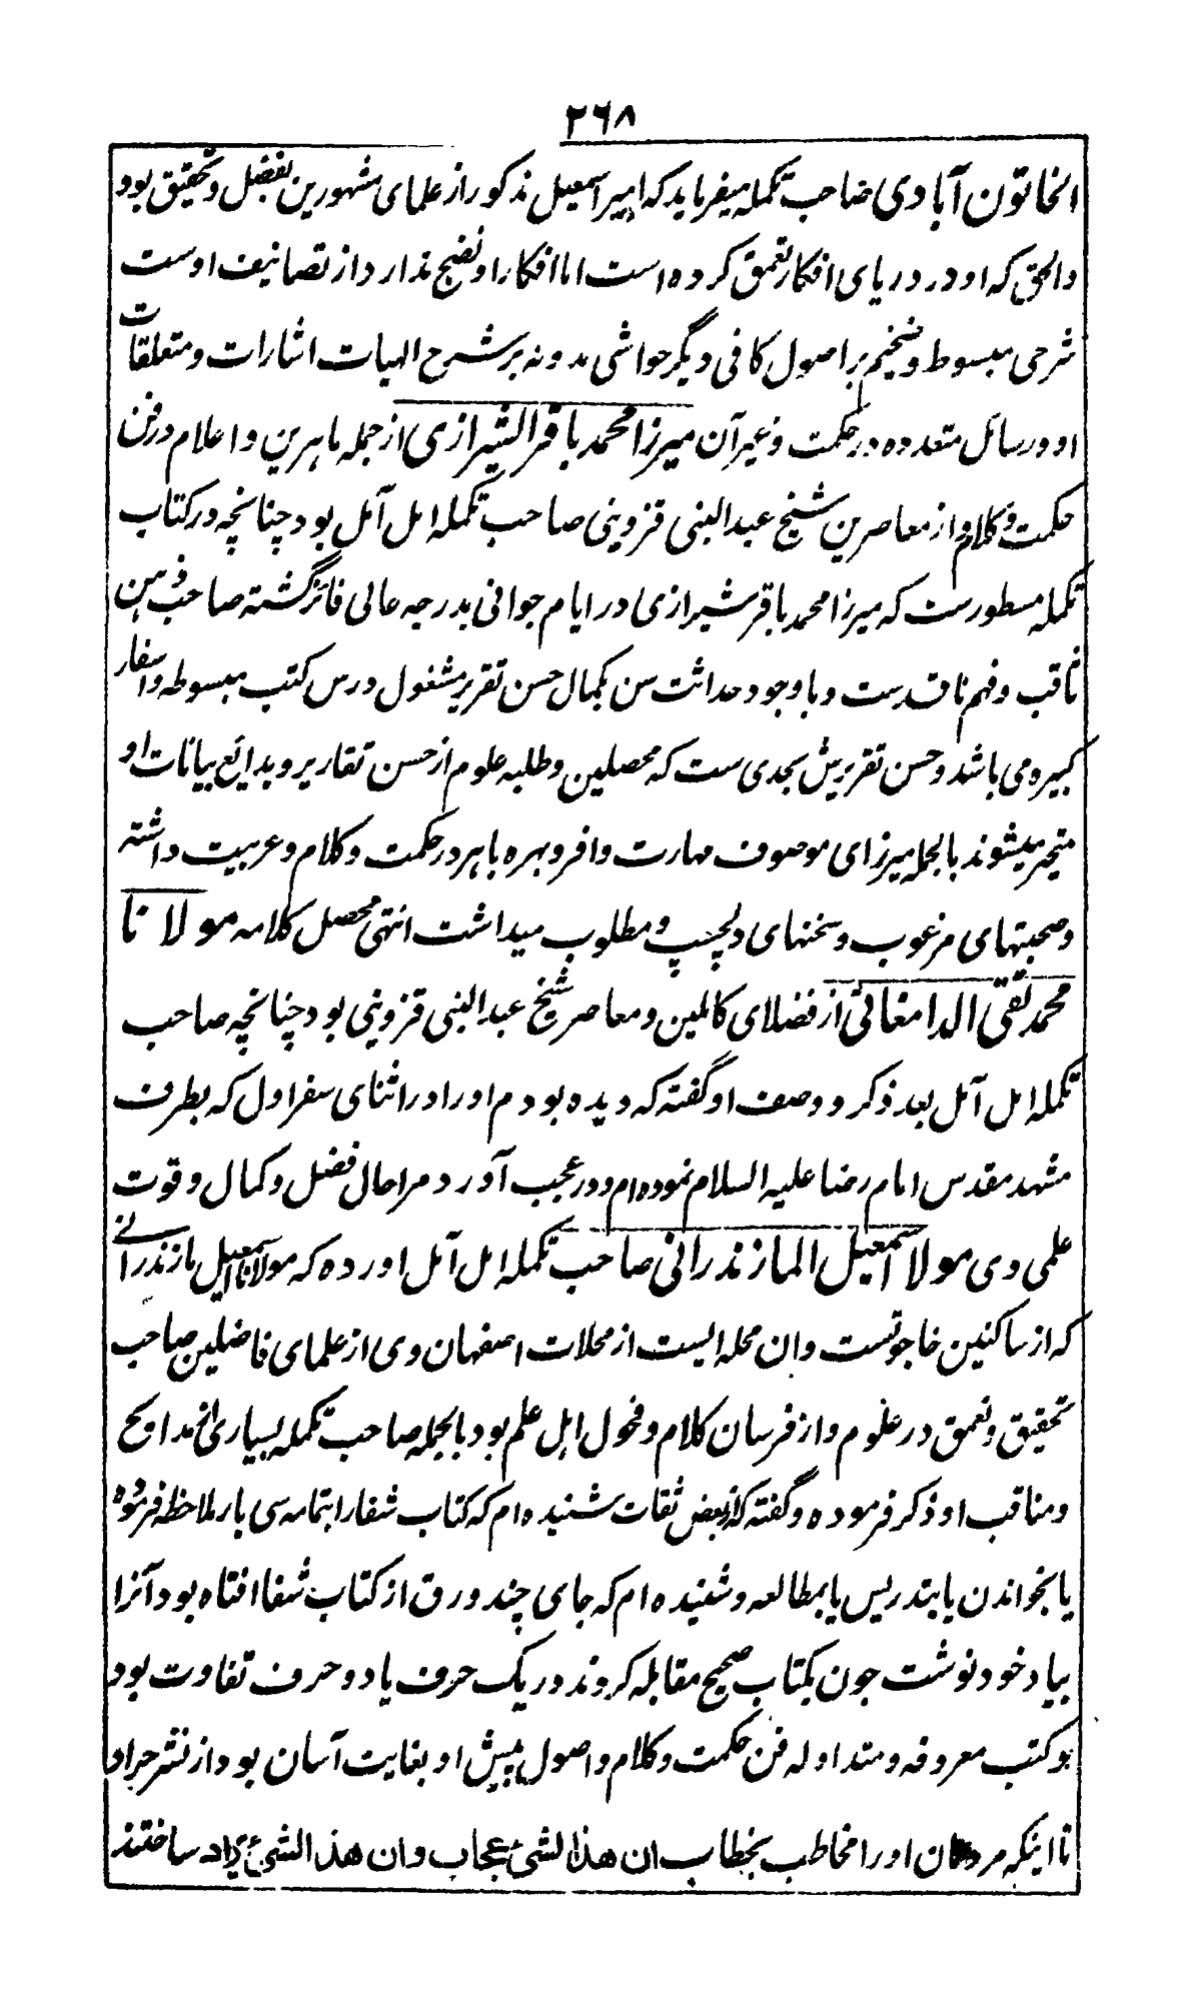 ۲۶۸
الخاتون آبادی صاحب تکمله میفرماید که امیر اسمعیل مذکور از علمای مشهورین بفضل و تحقیق بود
والحق که او در دریای افکار تعمق کرده است اما افکار او نضج ندارد از تصانیف اوست
شرحی مبسوط و ضخیم بر اصول کافی دیگر حواشی مدونه بر شرح الهیات اشارات و متعلقات
او و رسائل متعدده در حکمت و غیر آن میرزا محمد باقر الشیرازی از جمله ماهرین و اعلام در فن
حکمت و کلام و از معاصرین شیخ عبد النبی قزوینی صاحب تکمله امل آمل بود چنانچه در کتاب
تکمله مسطورست که میرزا محمد باقر شیرازی در ایام جوانی بدرجه عالی فائز گشته صاحب ذهن
ثاقب و فهم ناقدست و با وجود حداثت سن بکمال حسن تقریر مشغول درس کتب مبسوطه و اسفار
کبیره می باشد و حسن تقریرش بحدی ست که محصلین و طلبه علوم از حسن تقاریر و بدائع بیانات او
متحیر میشوند بالجمله میرزای موصوف مهارت وافر و بهره باهر در حکمت و کلام و عربیت داشته
و صحبتهای مرغوب و سخنهای دلچسپ و مطلوب میداشت انتهی محصل کلامه مولانا
محمد تقی الدامغانی از فضلای کاملین و معاصر شیخ عبد النبی قزوینی بود چنانچه صاحب
تکمله امل آمل بعد ذکر و وصف او گفته که دیده بودم او را در اثنای سفر اول که بطرف
مشهد مقدس امام رضا علیه السلام نموده ام و در عجب آورد مرا حال فضل و کمال و قوت
علمی وی مولا اسمعیل المازندرانی صاحب تکمله امل آمل اورده که مولانا اسمعیل مازندرانی
که از ساکنین خاجوئست وان محله ایست از محلات اصفهان وی از علمای فاضلین صاحب
تحقیق و تعمق در علوم و از فرسان کلام و فحول اهل علم بود بالجمله صاحب تکمله بسیاری از مدایح
و مناقب او ذکر فرموده و گفته که از بعض ثقات شنیده ام که کتاب شفا را بتمامه سی بار ملاحظه فرموده
یا بخواندن یا بتدریس یا بمطالعه و شنیده ام که جای چند ورق از کتاب شفا افتاه بود آنرا
بیاد خود نوشت چون بکتاب صحیح مقابله کروند در یک حرف یا دو حرف تفاوت بود
بو کتب معروفه و متداوله فن حکمت و کلام و اصول پیش او بغایت آسان بود از نشر جراد
تا اینکه مردمان او را مخاطب بخطاب ان هذا لشیء عجاب وان هذا الشیء یراد ساختند